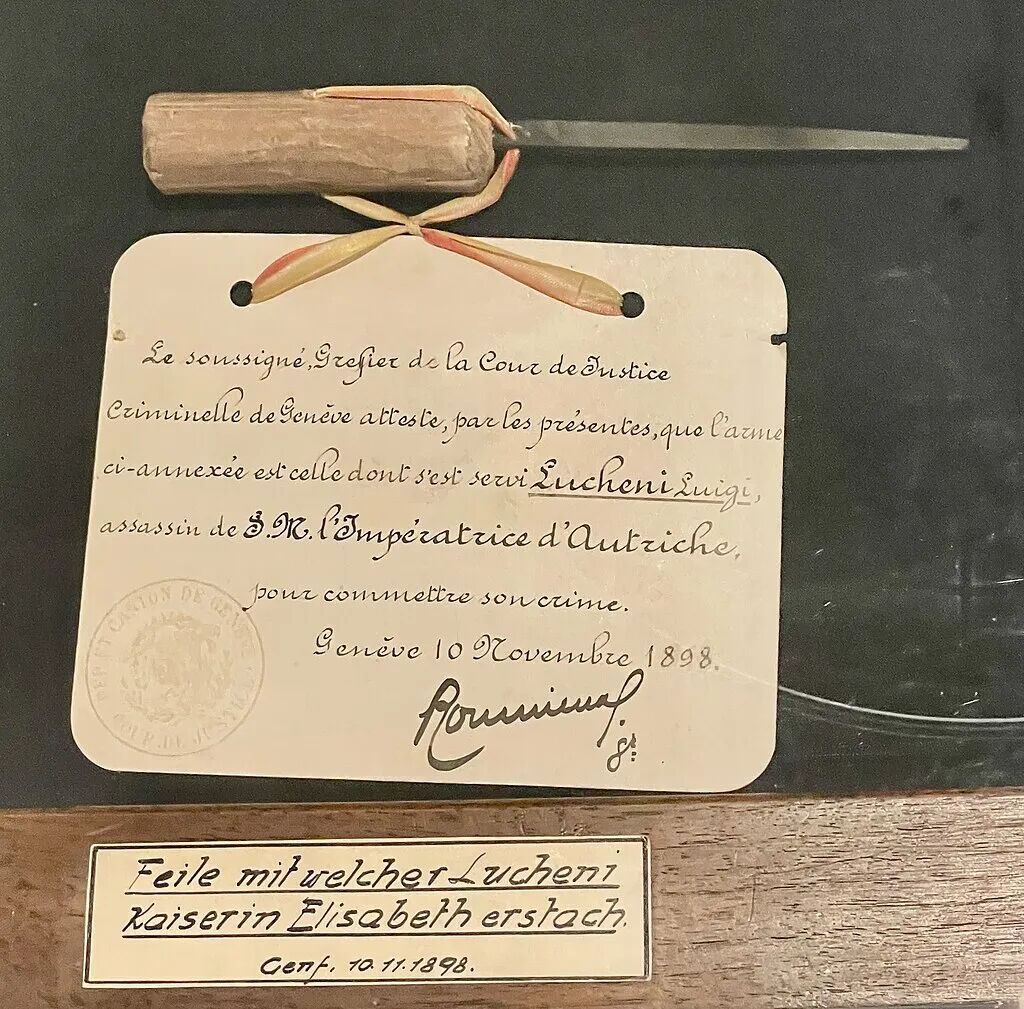 Le soussigné, Greffier de la Cour de Justice
Criminelle de Genève atteste, par les présentes, que l'arme
ci-annexée est celle dont s'est servi Lucheni Luigi,
assassin de S.M. l'Impératrice d'Autriche,
pour commettre son crime.
Genève 10 Novembre 1898.
CANTON DE GENÈVE
Feile mit welcher Lucheni
Kaiserin Elisabeth erstach.
Genf, 10.11.1898.